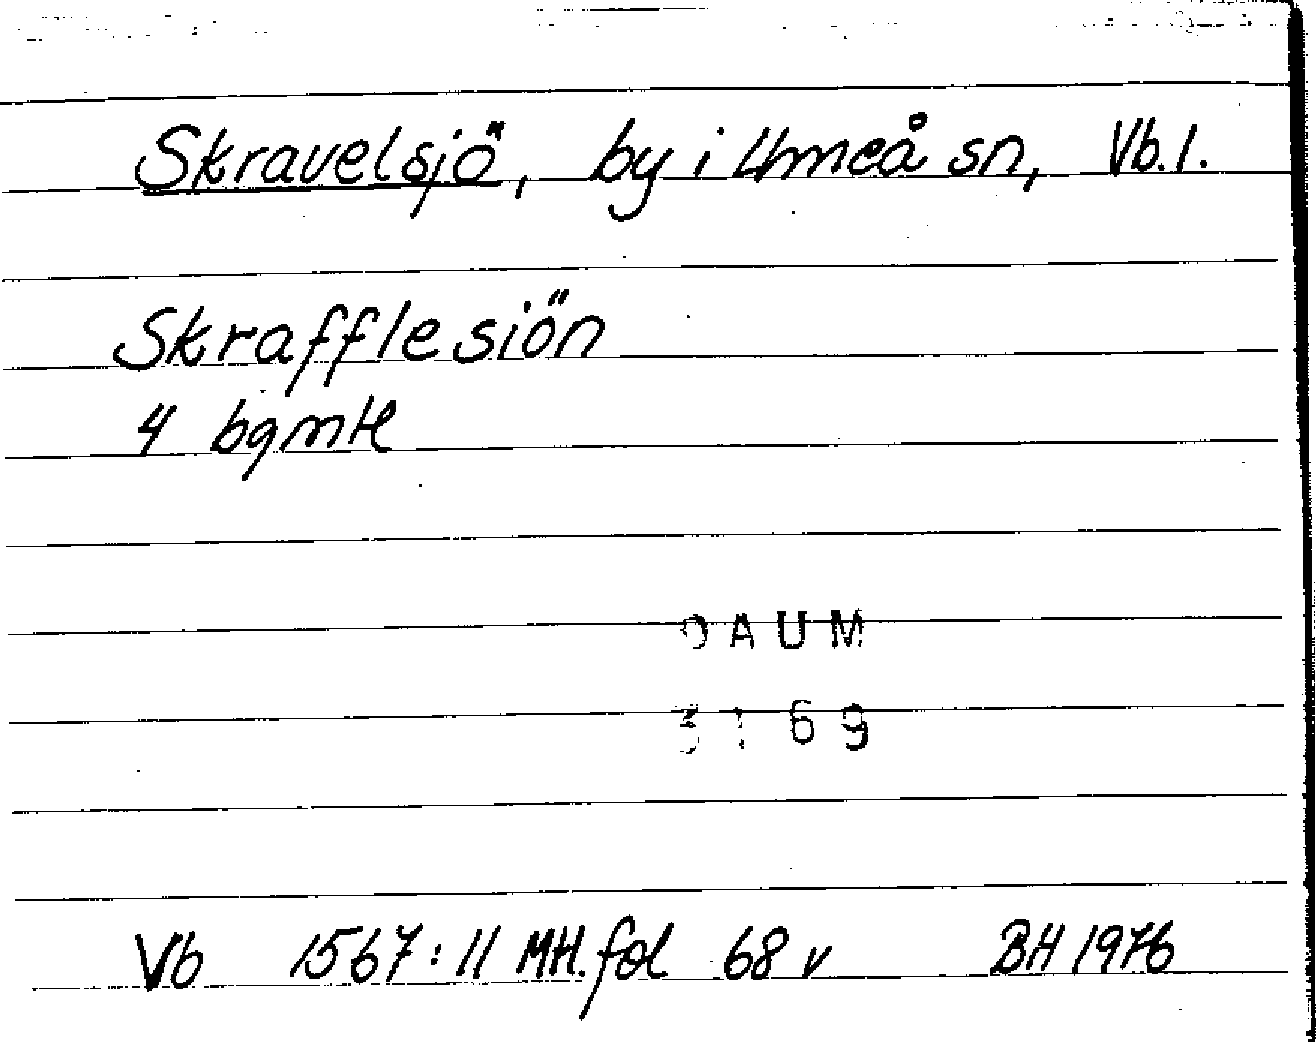 Skravelsjö, by i Umeå sn, Vb. l.
Skrafflesiön
4 bgmH
DAUM
3169
Vb 1567:11 MH. fol 68 v BH 1976